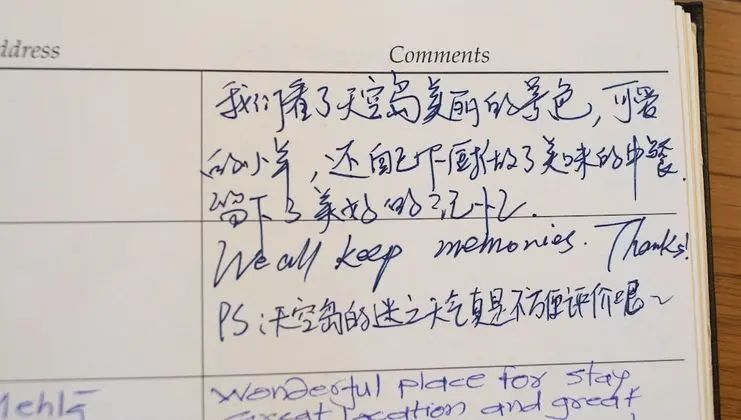 ddress
Comments
我们看了天空岛美丽的景色,可爱
的小羊,还自己下厨做了美味的中餐.
留下了美好的记忆.
We all keep memories. Thanks!
PS:天空岛的迷之天气真是不方便评价呢~
Mehla
Wonderful place for stay
great location and great